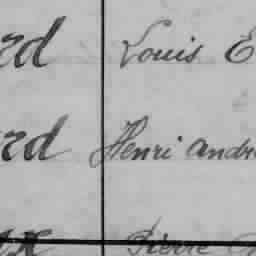 rd Louis E
rd Henri André
Pierre